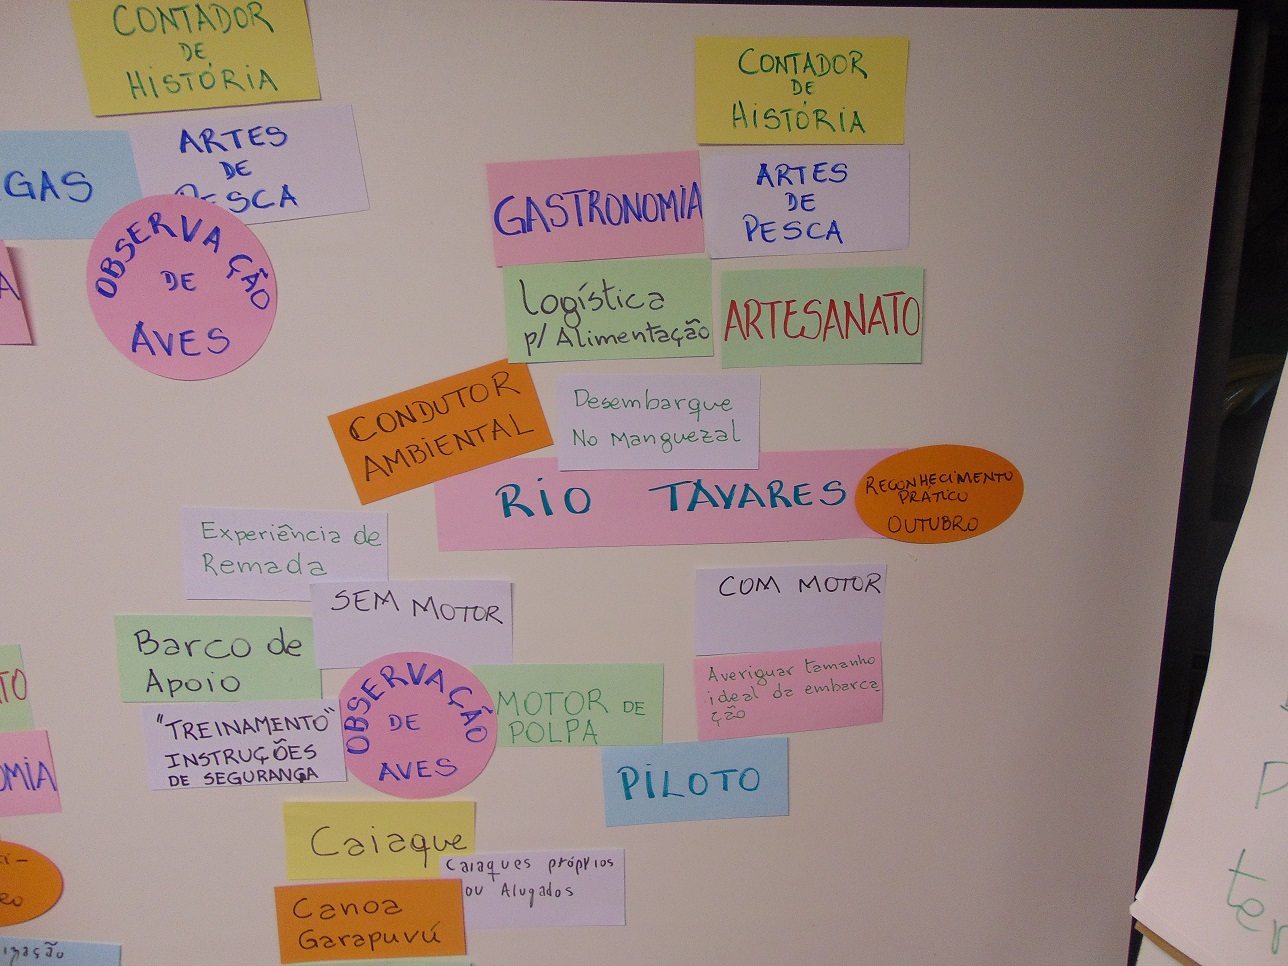 CONTADOR
DE
HISTÓRIA
ARTES
DE
PESCA
GAS
OBSERVAÇÃO
DE
AVES
A
CONTADOR
DE
HISTÓRIA
GASTRONOMIA
ARTES
DE
PESCA
Logística
p/ Alimentação
ARTESANATO
CONDUTOR
AMBIENTAL
Desembarque
No Manguezal
RIO TAVARES
RECONHECIMENTO
PRÁTICO
OUTUBRO
Experiência de
Remada
SEM MOTOR
COM MOTOR
Barco de
Apoio
Averiguar tamanho
ideal da embarca
ção
"TREINAMENTO"
INSTRUÇÕES
DE SEGURANÇA
OBSERVAÇÃO
DE
AVES
MOTOR DE
POLPA
PILOTO
Caiaque
Caiaques próprios
ou Alugados
Canoa
Garapuvú
TO
OMIA
ci-
ro
ização
P
ter